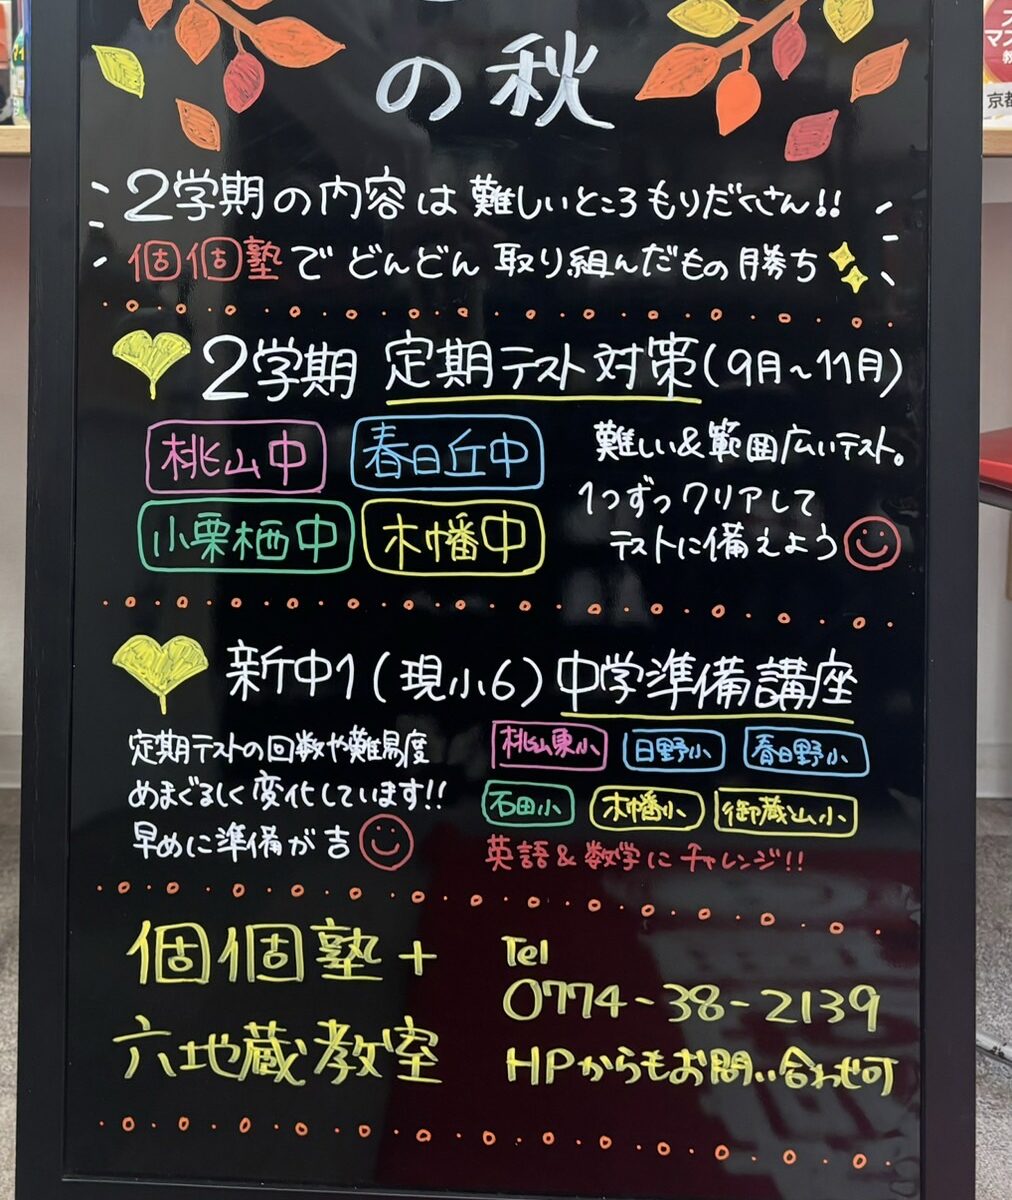 の秋
2学期の内容は難しいところもりだくさん!!
個個塾でどんどん取り組んだもの勝ち
2学期 定期テスト対策(9月~11月)
桃山中
春日丘中
小栗栖中
木幡中
難しい&範囲広いテスト。
1つずつクリアして
テストに備えよう
新中1(現小6)中学準備講座
定期テストの回数や難易度
めまぐるしく変化しています!!
早めに準備が吉
桃山東小
日野小
春日野小
石田小
木幡小
御蔵山小
英語&数学にチャレンジ!!
個個塾+
六地蔵教室
Tel
0774-38-2139
HPからもお問い合わせ可
京都